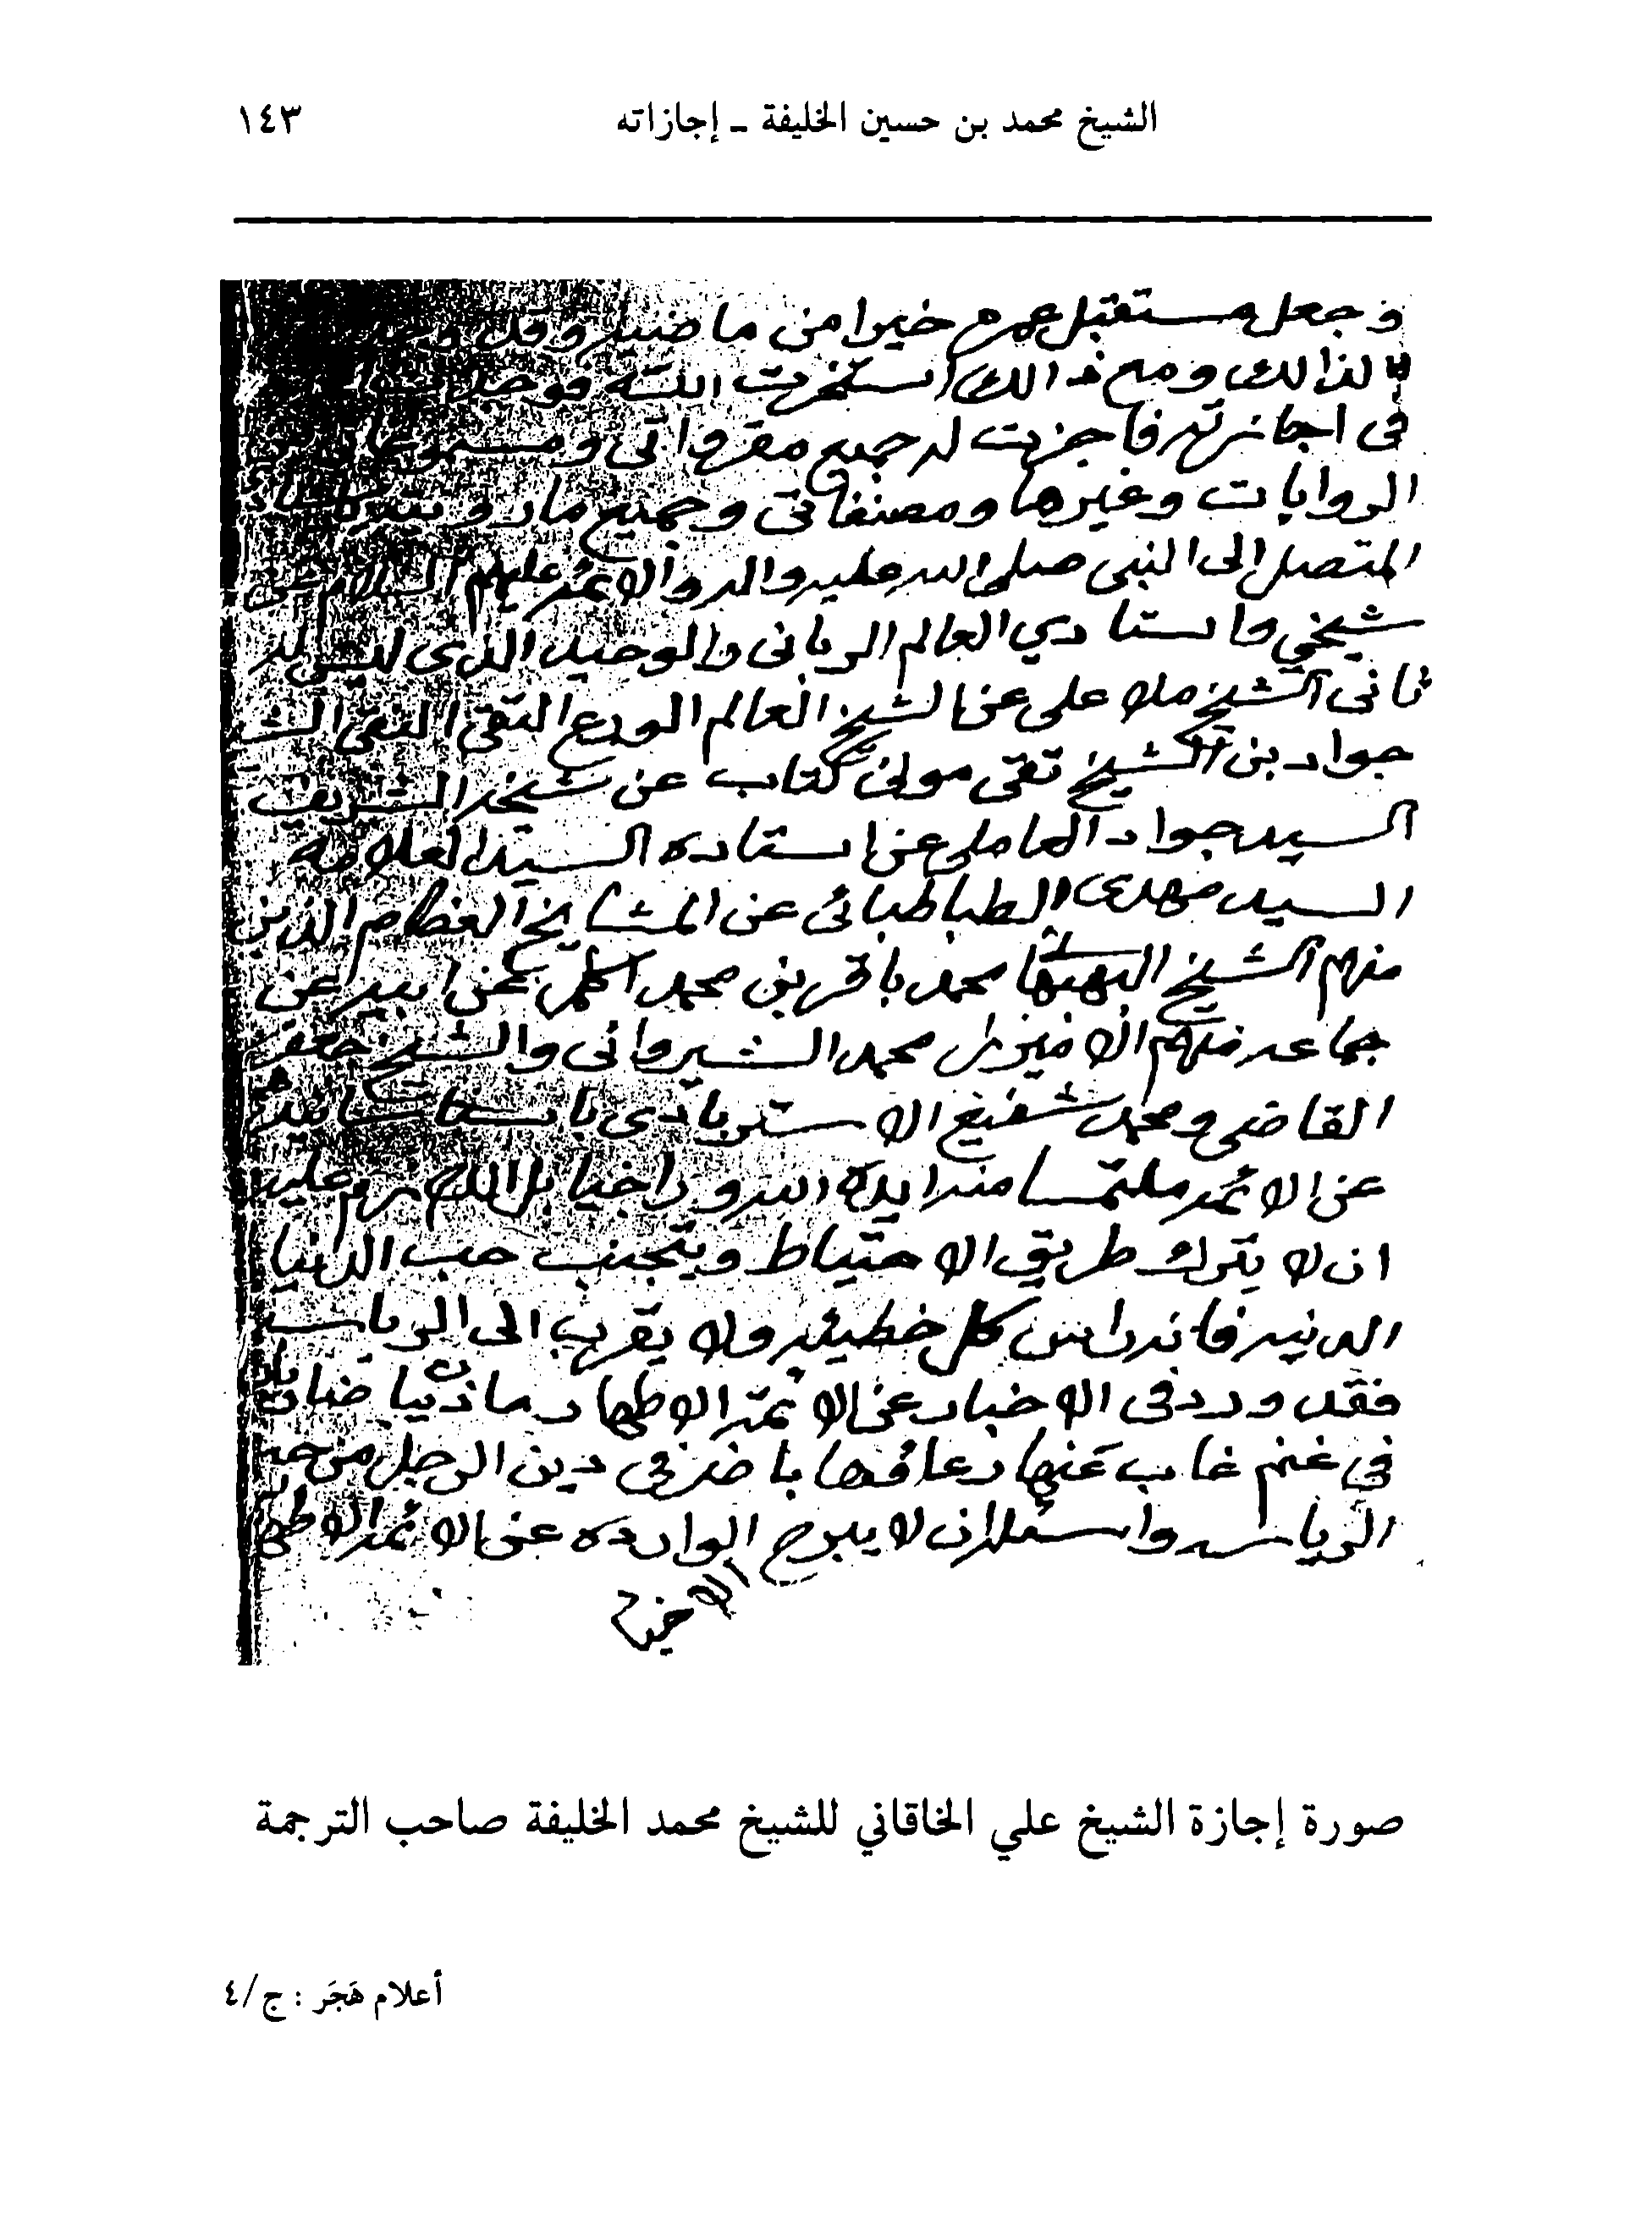 الشيخ محمد بن حسين الخليفة ـ إجازاته ١٤٣
وجعل مستقبل عمره خيرا من ماضيه وقد
لذالك ومع ذالك استخرت الله فوجد
في اجازته فاجزت له جميع مقرواتي ومسموعاتي
الروايات وغيرها ومصنفاتي وجميع ما رويته
المتصل إلى النبي صلى الله عليه واله والائمه عليهم السلام عن
شيخي واستادي العالم الرباني والوحيد الذي ليس له
ثاني الشيخ ملا علي عن الشيخ العالم الورع التقي النقي
جواد بن الشيخ تقي مولى كتاب عن شيخه الشريف
السيد جواد العاملي عن استاده السيد العلامه
السيد مهدي الطباطبائي عن المشايخ العظام الذين
منهم الشيخ محمد باقر بن محمد اكمل عن ابيه عن
جماعه منهم الاميرزا محمد الشيرواني والشيخ جعفر
القاضي ومحمد شفيع الاستربادي
عن الائمه ملتمسا منه ايده الله بل اللازم عليه
ان لا يترك طريق الاحتياط ويتجنب حب الدنيا
الدنيه فانه راس كل خطيئه ولا يقرب الى الرياسه
فقد ورد في الاخبار عن الائمه الاطهار ما ذئبان
في غنم غاب عنها رعاؤها باضر في دين الرجل من حب
الرياسه واسئله ان لا يبرح الوارده عن الائمه
صورة إجازة الشيخ علي الخاقاني للشيخ محمد الخليفة صاحب الترجمة
أعلام هَجَر : ج/٤